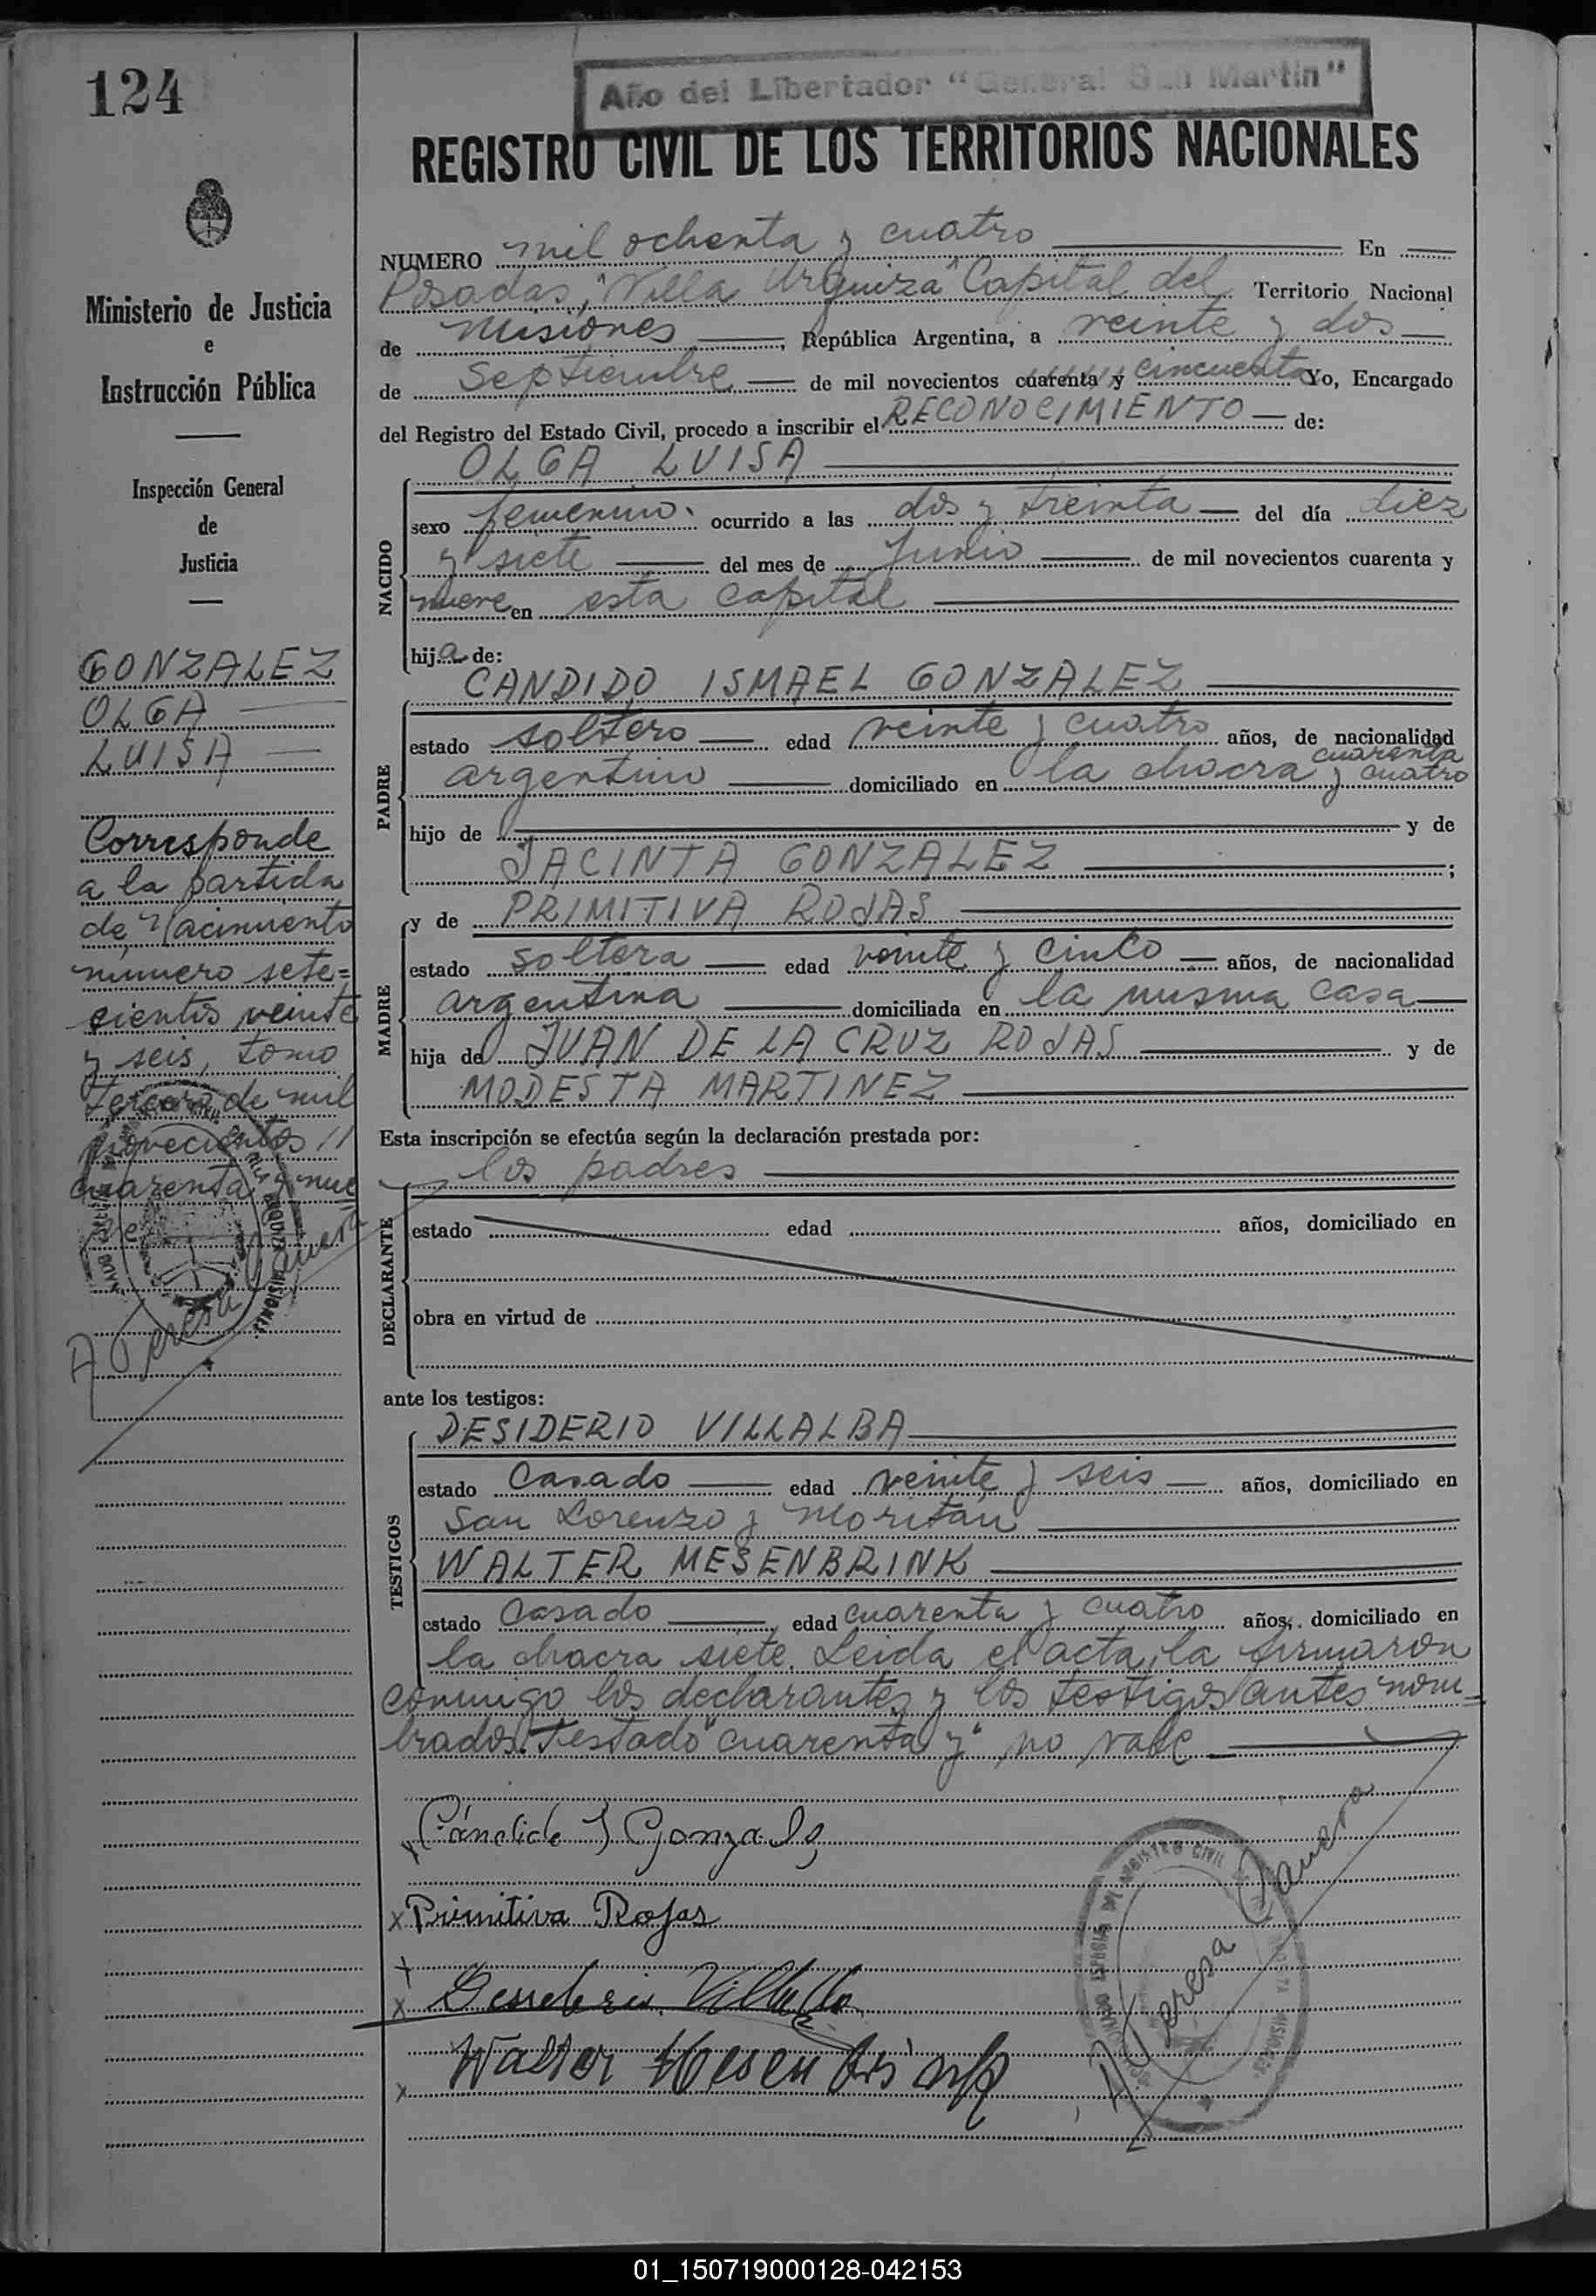 124
Año del Libertador "General San Martin"
REGISTRO CIVIL DE LOS TERRITORIOS NACIONALES
Ministerio de Justicia
e
Instrucción Pública
Inspección General
de
Justicia
GONZALEZ
OLGA
LUISA
Corresponde
a la partida
de Nacimiento
número sete=
cientos veinte
y seis, tomo
tercero de mil
novecientos //
cuarenta y nue
ve
A Teresa
NUMERO mil ochenta y cuatro En
Posadas, "Villa Urquiza" Capital del Territorio Nacional
de Misiones, República Argentina, a veinte y dos
de Septiembre de mil novecientos cuarenta y cincuenta Yo, Encargado
del Registro del Estado Civil, procedo a inscribir el RECONOCIMIENTO de:
OLGA LUISA
NACIDO
sexo femenino. ocurrido a las dos y treinta del día diez
y siete del mes de Junio de mil novecientos cuarenta y
nueve en esta capital
hija de:
CANDIDO ISMAEL GONZALEZ
PADRE
estado soltero edad veinte y cuatro años, de nacionalidad
argentino domiciliado en la chacra cuarenta y cuatro
hijo de y de
JACINTA GONZALEZ ;
MADRE
y de PRIMITIVA ROJAS
estado soltera edad veinte y cinco años, de nacionalidad
argentina domiciliada en la misma casa
hija de JUAN DE LA CRUZ ROJAS y de
MODESTA MARTINEZ
Esta inscripción se efectúa según la declaración prestada por:
los padres
DECLARANTE
estado edad años, domiciliado en
obra en virtud de
ante los testigos:
TESTIGOS
DESIDERIO VILLALBA
estado Casado edad veinte y seis años, domiciliado en
San Lorenzo y Moritán
WALTER MESENBRINK
estado Casado edad cuarenta y cuatro años, domiciliado en
la chacra siete. Leida el acta, la firmaron
conmigo los declarantes y los testigos antes nom=
brados. Testado "cuarenta y" no vale
x Cándido I Gonzalez
x Primitiva Rojas
x Desiderio Villalba
x Walter Mesenbrink
REGISTRO CIVIL
MISIONES
A Teresa
01_150719000128-042153